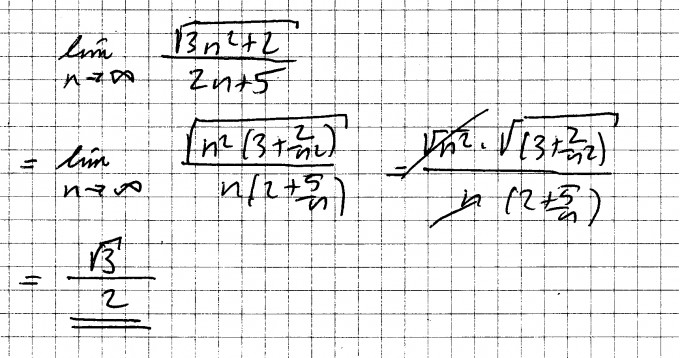 lim n→∞ √(3n²+2) / (2n+5)
= lim n→∞ √(n²(3+2/n²)) / (n(2+5/n)) = √n² · √((3+2/n²)) / (n (2+5/n))
= √3 / 2